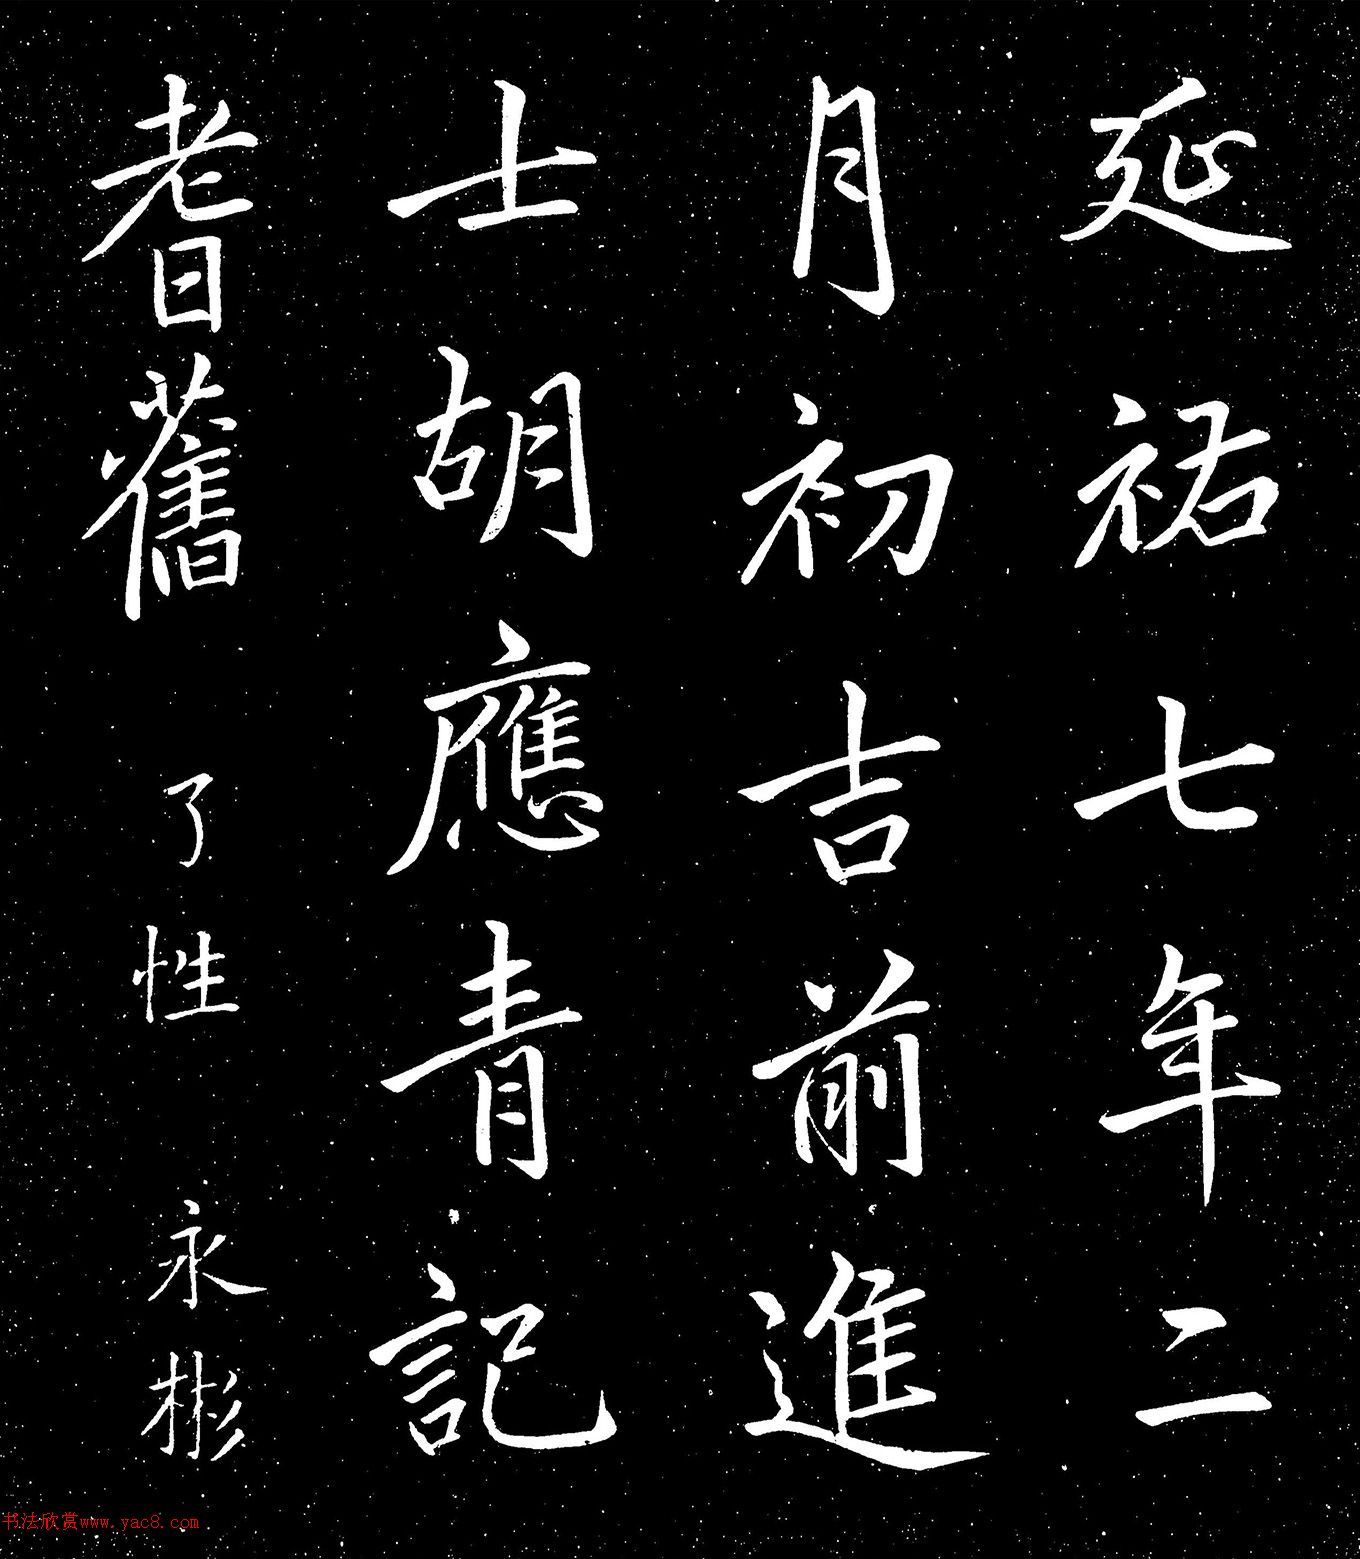 延祐七年二
月初吉前進
士胡應青記
耆舊 了性 永彬
书法欣赏www.yac8.com